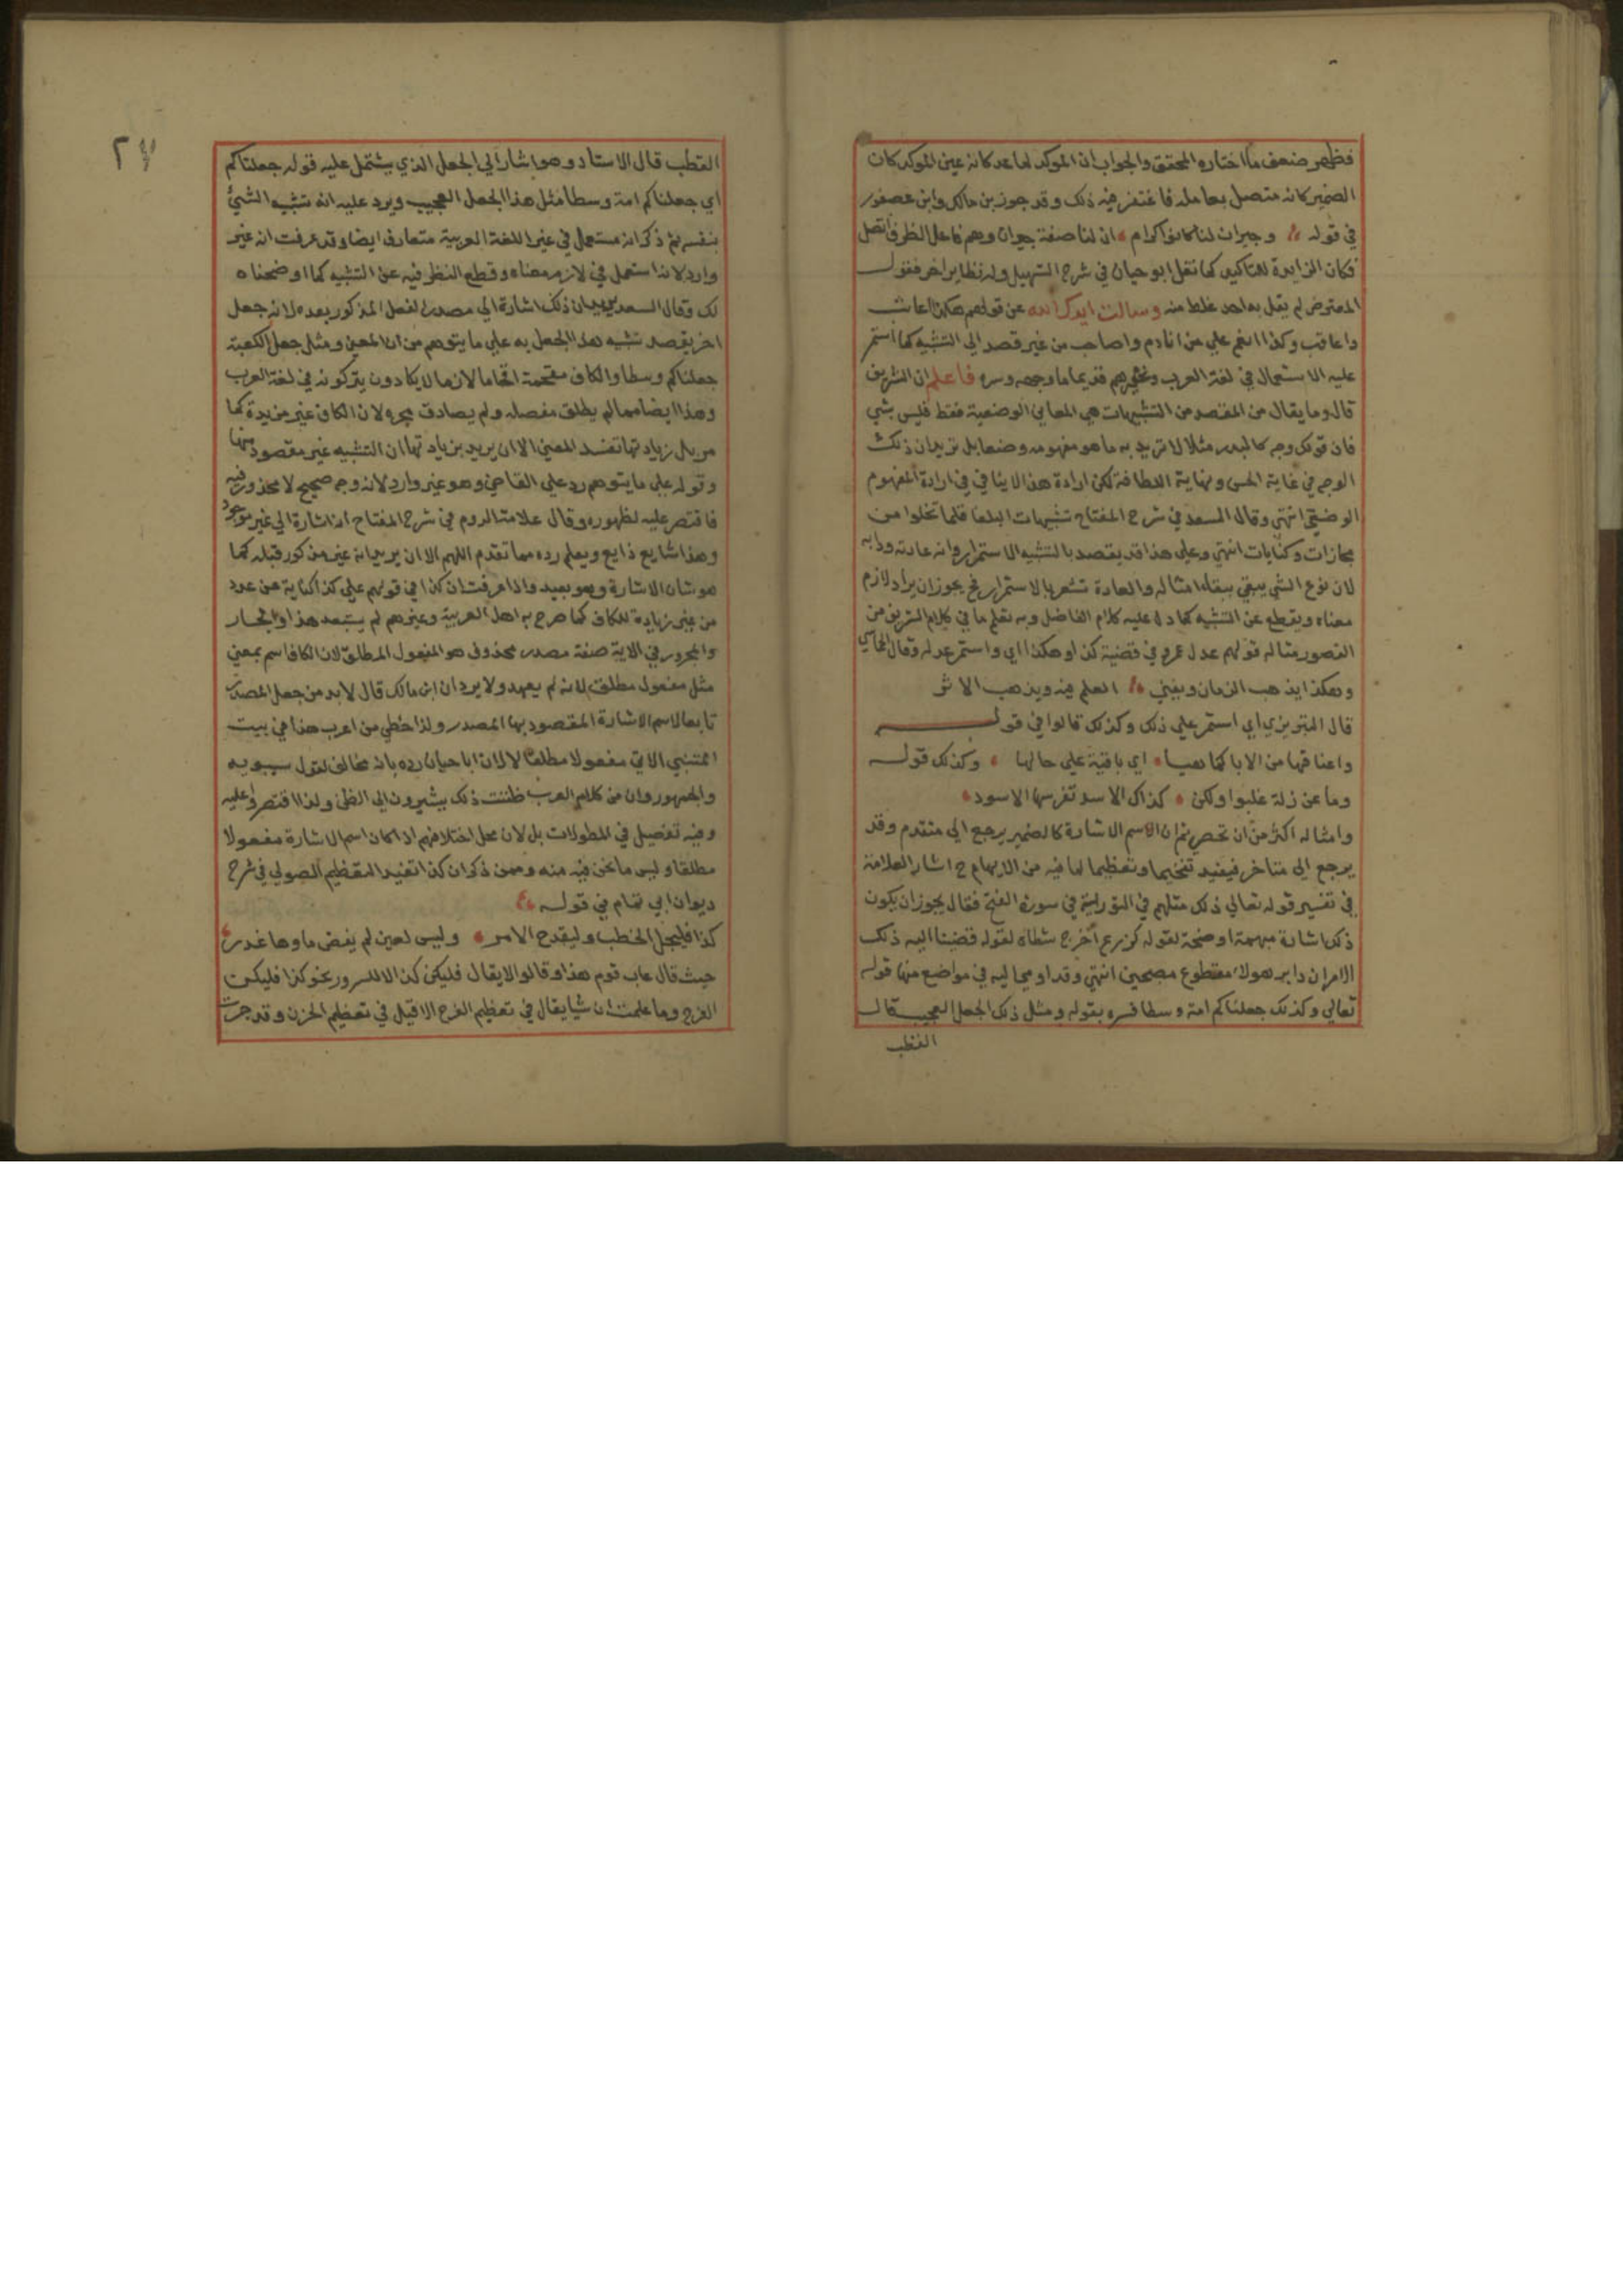 فظهر ضعف ما اختاره المحقق والجواب ان الموكد لما عد كانه عين الموكد كان
الضمير كانه متصل بعامله فاغتفر فيه ذلك وقد جوز بن مالك وابن عصفور
في قوله وجيران لنا كانوا كرام ان لنا صفة جيران وهم فاعل الظرف اتصل
فكان الزايدة للتاكيد كما نقل ابو حيان في شرح التسهيل وله نظاير اخر فقول
المعترض لم يقل به احد غلط منه وسالت ايدك الله عن قولهم هكذا اعاتب
واعاقب وكذا انعم علي من انادم واصاحب من غير قصد الي التشبيه كما استمر
عليه الاستعمال في لغة العرب وغيرهم قديما ما وجهه وسره فاعلم ان الشريف
قال وما يقال من المقصد من التشبيهات هي المعاني الوضعية فقط فليس بشي
فان قولك وجه كالبدر مثلا لا تريد به ما هو مفهومه وضعا بل تريد ان ذلك
الوجه في غاية الحسن ونهاية اللطافة لكن ارادة هذا لا ينافي في ارادة المفهوم
الوضعي انتهي وقال السعد في شرح المفتاح تشبيهات البلغا قلما تخلوا من
مجازات وكنايات انتهي وعلي هذا قد يقصد بالتشبيه الاستمرار وانه عادته ودابه
لان نوع الشي يبقي ببقاء امثاله والعادة تشعر بالاستمرار فح يجوز ان يراد لازم
معناه ويقطع عن التشبيه كما دل عليه كلام الفاضل وبه تعلم ما في كلام الشريف من
القصور مثاله قولهم عدل عمر في قضية كذا وهكذا اي واستمر عدله وقال الحماسي
وهكذا يذهب الزمان ويفني العلم فيه ويذهب الاثر
قال التبريزي اي استمر علي ذلك وكذلك قالوا في قوله
واعناقها من الابا كما هيا اي باقية علي حالها وكذلك قوله
وما عن زلة غلبوا ولكن كذاك الاسد تفرسها الاسود
وامثاله اكثر من ان تحصي ثم ان الاسم الاشارة كالضمير يرجع الي متقدم وقد
يرجع الي متاخر فيفيد تفخيما وتعظيما لما فيه من الابهام ح اشار العلامة
في تفسير قوله تعالي ذلك مثلهم في التورية في سورة الفتح فقال يجوز ان يكون
ذلك اشارة مبهمة اوضحة لقوله كزرع اخرج شطاه لقوله قضينا اليه ذلك
الامر ان دابر هولاء مقطوع مصبحين انتهي وقد اومي اليه في مواضع منها قوله
تعالي وكذلك جعلناكم امة وسطا فسره بقوله ومثل ذلك الجعل العجيب قال
القطب
القطب قال الاستاد وهو اشار الي الجعل الذي يشتمل عليه قوله جعلناكم
اي جعلناكم امة وسطا مثل هذا الجعل العجيب ويرد عليه انه تشبيه الشيء
بنفسه ثم ذكر انه مستعمل في غير اللغة العربية متعارف ايضا وقد عرفت انه غير
وارد لانه استعمل في لازم معناه وقطع النظر فيه عن التشبيه كما اوضحناه
لك وقال السعد يريد ان ذلك اشارة الي مصدر الفعل المذكور بعده لانه جعل
اخر يقصد تشبيه هذا الجعل به علي ما يتوهم من ان المعني ومثل جعل الكعبة
جعلناكم وسطا والكاف مقحمة اقحاما لازما لا يكادون يتركونه في لغة العرب
وهذا ايضا مما لم يطلق مفصله ولم يصادق بحره لان الكاف غير مزيدة كما
مر بل زيادتها تفسد المعني الا ان يريد بزيادتها ان التشبيه غير مقصود منها
وقوله علي ما يتوهم رد علي القاضي وهو غير وارد لانه وجه صحيح لا محذور فيه
فاقتصر عليه لظهوره وقال علامة الروم في شرح المفتاح انه اشارة الي غير موجود
وهذا شايع ذايع ويعلم رده مما تقدم اللهم الا ان يريد انه غير مذكور قبله كما
هو شان الاشارة وهو بعيد واذا عرفت ان كذا في قولهم علي كذا كناية عن عدد
من غير زيادة للكاف كما صرح به اهل العربية وغيرهم لم يستبعد هذا والجار
والمجرور في الاية صفة مصدر محذوف هو المفعول المطلق لان الكاف اسم بمعني
مثل مفعول مطلق لانه لم يعهد ولا يرد ان ابن مالك قال لا بد من جعل المصدر
تابعا لاسم الاشارة المقصود بها المصدر ولذا خطي من اعرب هذا في بيت
المتنبي الاتي مفعولا مطلقا لا لان ابا حيان رده بانه مخالف لقول سيبويه
والجمهور وان من كلام العرب ظننت ذلك يشيرون الي الظن ولذا اقتصروا عليه
وفيه تفصيل في المطولات بل لان محل اختلافهم اذا كان اسم الاشارة مفعولا
مطلقا وليس ما نحن فيه منه وممن ذكر ان كذا تفيد التعظيم الصولي في شرح
ديوان ابي تمام في قوله
كذا فليجل الخطب وليفدح الامر وليس لعين لم يفض ماوها عذر
حيث قال عاب قوم هذا وقالوا لا يقال فليكن كذا الا للسرور نحو كذا فليكن
الفرح وما علمت ان شيا يقال في تعظيم الفرح الا قيل في تعظيم الحزن وقد جرت